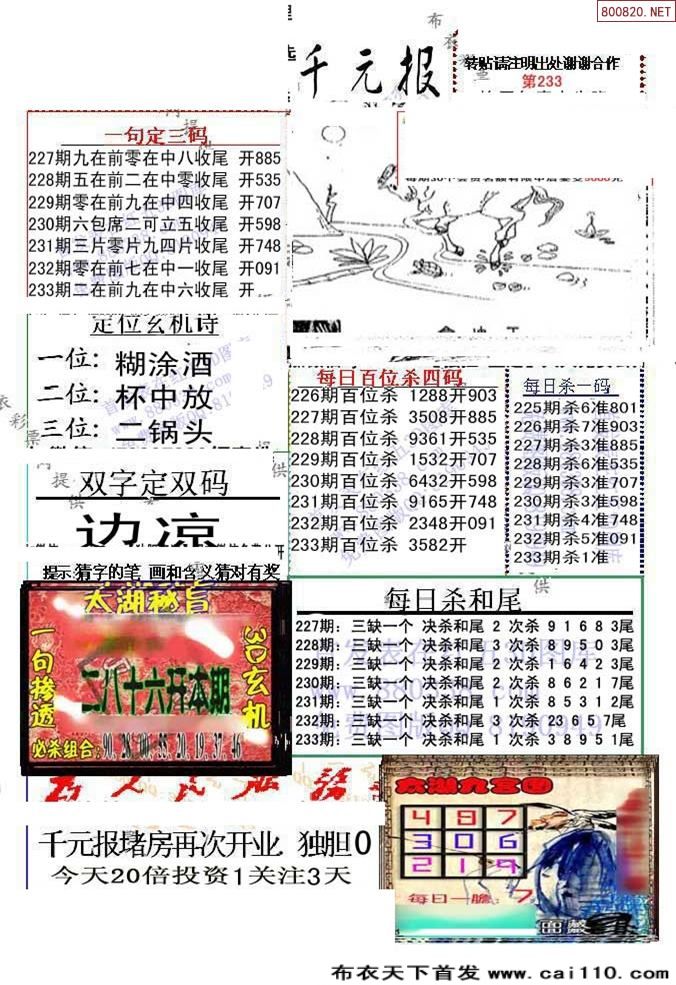 800820.NET
千元报
转贴请注明出处谢谢合作
第233
一句定三码
227期九在前零在中八收尾 开885
228期五在前二在中零收尾 开535
229期零在前九在中四收尾 开707
230期六包席二可立五收尾 开598
231期三片零片九四片收尾 开748
232期零在前七在中一收尾 开091
233期二在前九在中六收尾 开
定位玄机诗
一位: 糊涂酒
二位: 杯中放
三位: 二锅头
每日百位杀四码
226期百位杀 1288开903
227期百位杀 3508开885
228期百位杀 9361开535
229期百位杀 1532开707
230期百位杀 6432开598
231期百位杀 9165开748
232期百位杀 2348开091
233期百位杀 3582开
每日杀一码
225期杀6准801
226期杀7准903
227期杀3准885
228期杀6准535
229期杀3准707
230期杀3准598
231期杀4准748
232期杀5准091
233期杀1准
双字定双码
边凉
提示:猜字的笔 画和含义猜对有奖
太湖秘旨
一句掺透
3D玄机
二八十六开本期
必杀组合:90.28.00.33.20.19.37.46
每日杀和尾
227期: 三缺一个 决杀和尾 2 次杀 9 1 6 8 3尾
228期: 三缺一个 决杀和尾 3 次杀 8 9 5 0 3尾
229期: 三缺一个 决杀和尾 2 次杀 1 6 4 2 3尾
230期: 三缺一个 决杀和尾 2 次杀 8 6 2 1 7尾
231期: 三缺一个 决杀和尾 1 次杀 8 5 3 1 2尾
232期: 三缺一个 决杀和尾 3 次杀 23 6 5 7尾
233期: 三缺一个 决杀和尾 1 次杀 3 8 9 5 1尾
太湖九宫图
4 8 7
3 0 6
2 1 9
每日一胆: 7
千元报堵房再次开业 独胆0
今天20倍投资1关注3天
布衣天下首发 www.cai110.com